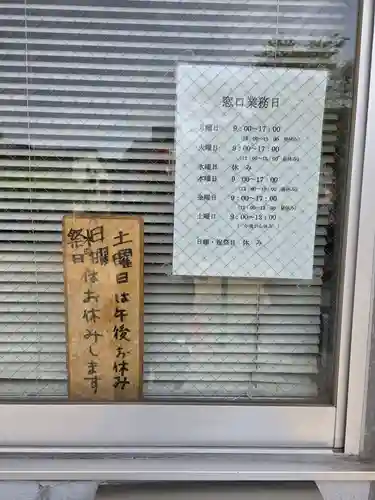 窓口業務日
月曜日 9:00~17:00
(12:00~13:00 昼休み)
火曜日 9:00~17:00
(12:00~13:00 昼休み)
水曜日 休み
木曜日 9:00~17:00
(12:00~13:00 昼休み)
金曜日 9:00~17:00
(12:00~13:00 昼休み)
土曜日 9:00~12:00
日曜・祝祭日 休み
土曜日は午後お休み
日曜
祭日はお休みします